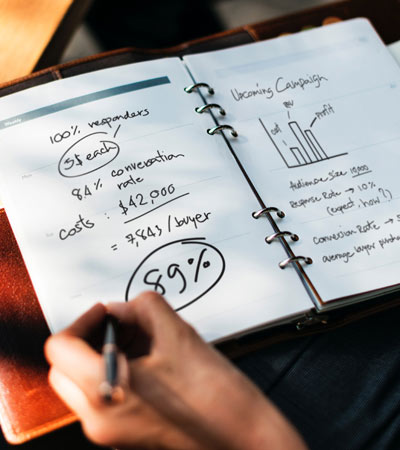 Weekly
100% responders
5$ each
84% conversation
rate
costs : $42,000
= 7,84$/buyer
89%
Upcoming Campaign
cost
rev
profit
Audience Size 10,000
Response Rate → 10%
(expect, how?)
Conversion Rate → 5
average buyer purcha